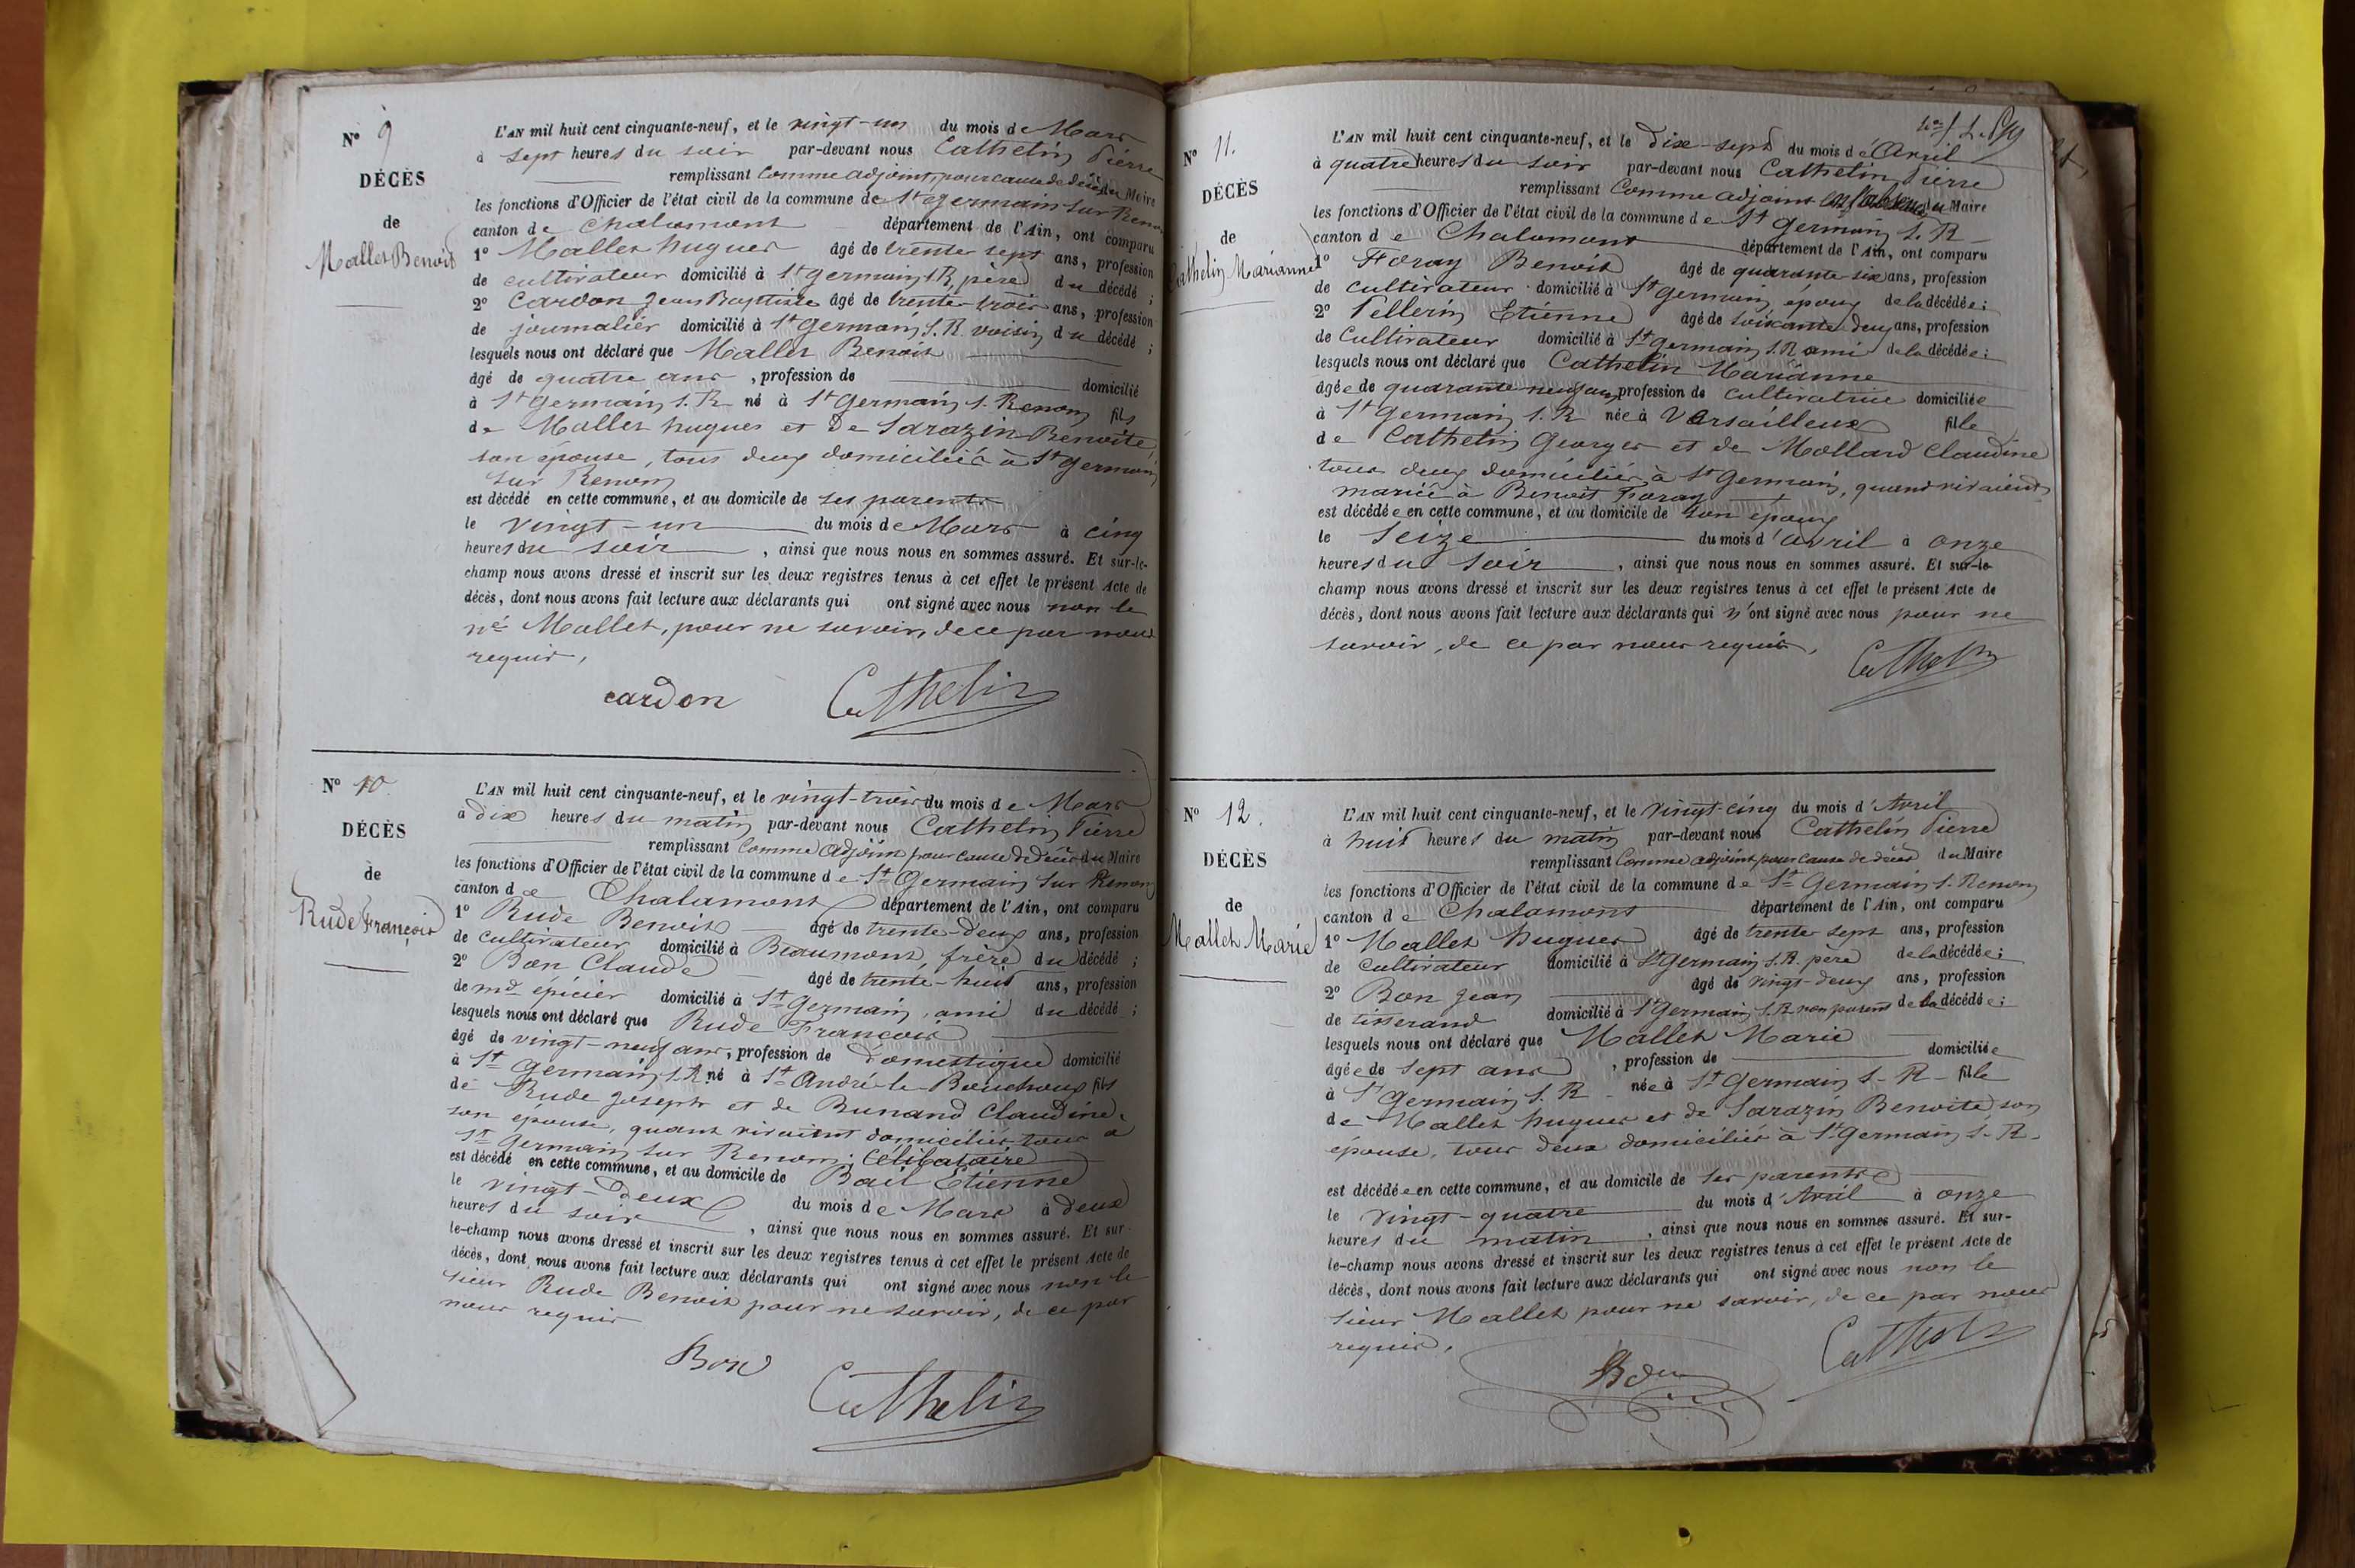 N° 9
DÉCÈS
de
Mallet Benoit
L'AN mil huit cent cinquante-neuf, et le vingt-un du mois de Mars
à sept heures du soir par-devant nous Cathelin Pierre
remplissant Comme adjoint, pour cause de décès du Maire
les fonctions d'Officier de l'état civil de la commune de St Germain sur Renon
canton de Chalamont département de l'Ain, ont comparu
1° Mallet hugues âgé de trente sept ans, profession
de cultivateur domicilié à St germain s R, père du décédé ;
2° Cardon Jean Baptiste âgé de trente-trois ans, profession
de journalier domicilié à St Germain S. R. voisin du décédé ;
lesquels nous ont déclaré que Mallet Benoit
âgé de quatre ans , profession de domicilié
à St Germain S. R né à St Germain s. Renon fils
de Mallet hugues et de Sarazin Benoite,
son épouse, tous deux domiciliés à St germain
sur Renon
est décédé en cette commune, et au domicile de ses parents
le vingt-un du mois de Mars à cinq
heures du soir , ainsi que nous nous en sommes assuré. Et sur-le-
champ nous avons dressé et inscrit sur les deux registres tenus à cet effet le présent Acte de
décès, dont nous avons fait lecture aux déclarants qui ont signé avec nous non le
né Mallet, pour ne savoir, de ce par nous
requis,
cardon Cathelin
N° 10
DÉCÈS
de
Rude François
L'AN mil huit cent cinquante-neuf, et le vingt-trois du mois de Mars
à dix heures du matin par-devant nous Cathelin Pierre
remplissant Comme adjoint pour cause de décès du Maire
les fonctions d'Officier de l'état civil de la commune de St Germain sur Renon
canton de Chalamont département de l'Ain, ont comparu
1° Rude Benoit âgé de trente-deux ans, profession
de cultivateur domicilié à Beaumont, frère du décédé ;
2° Bon Claude âgé de trente-huit ans, profession
de md épicier domicilié à St Germain, ami du décédé ;
lesquels nous ont déclaré que Rude François
âgé de vingt-neuf ans, profession de domestique domicilié
à St Germain s. R né à St André-le-Bouchoux fils
de Rude Joseph et de Bunand Claudine,
son épouse, quant vivaient domiciliés tous a
St Germain sur Renon ; Célibataire
est décédé en cette commune, et au domicile de Bail Etienne
le vingt-deux du mois de Mars à deux
heures du soir , ainsi que nous nous en sommes assuré. Et sur-
le-champ nous avons dressé et inscrit sur les deux registres tenus à cet effet le présent Acte de
décès, dont nous avons fait lecture aux déclarants qui ont signé avec nous non le
sieur Rude Benoit pour ne savoir, de ce par
nous requis
Bon
Cathelin
N° 11.
DÉCÈS
de
Cathelin Marianne
L'AN mil huit cent cinquante-neuf, et le dix-sept du mois d'Avril
à quatre heures du soir par-devant nous Cathelin Pierre
remplissant Comme adjoint du Maire
les fonctions d'Officier de l'état civil de la commune de St Germain s. R
canton de Chalamont département de l'Ain, ont comparu
1° Foray Benoit âgé de quarante six ans, profession
de cultivateur domicilié à St germain, époux de la décédée ;
2° Pellerin Etienne âgé de soixante deux ans, profession
de Cultivateur domicilié à St germain s. R ami de la décédée ;
lesquels nous ont déclaré que Cathelin Marianne
âgée de quarante-neuf ans, profession de cultivatrice domiciliée
à St germain s. R née à Versailleux fille
de Cathelin Georges et de Mollard Claudine
tous deux domiciliés à St Germain, quand vivaient
mariée à Benoit Foray
est décédée en cette commune, et au domicile de son époux
le Seize du mois d'avril à onze
heures du soir , ainsi que nous nous en sommes assuré. Et sur-le-
champ nous avons dressé et inscrit sur les deux registres tenus à cet effet le présent Acte de
décès, dont nous avons fait lecture aux déclarants qui n'ont signé avec nous pour ne
savoir, de ce par nous requis,
Cathelin
N° 12.
DÉCÈS
de
Mallet Marie
L'AN mil huit cent cinquante-neuf, et le vingt-cinq du mois d'Avril
à huit heures du matin par-devant nous Cathelin Pierre
remplissant Comme adjoint, pour cause de décès du Maire
les fonctions d'Officier de l'état civil de la commune de St Germain s. Renon
canton de Chalamont département de l'Ain, ont comparu
1° Mallet hugues âgé de trente sept ans, profession
de cultivateur domicilié à St Germain s. R. père de la décédée ;
2° Bon Jean âgé de vingt-deux ans, profession
de tisserand domicilié à St Germain s. R non parent de la décédée ;
lesquels nous ont déclaré que Mallet Marie
âgée de sept ans , profession de domiciliée
à St Germain s. R née à St Germain s-R- fille
de Mallet hugues et de Sarazin Benoite son
épouse, tous deux domiciliés à St Germain s-R-
est décédée en cette commune, et au domicile de ses parents
le vingt-quatre du mois d'Avril à onze
heures du matin , ainsi que nous nous en sommes assuré. Et sur-
le-champ nous avons dressé et inscrit sur les deux registres tenus à cet effet le présent Acte de
décès, dont nous avons fait lecture aux déclarants qui ont signé avec nous non le
sieur Mallet pour ne savoir, de ce par nous
requis.
Bon
Cathelin